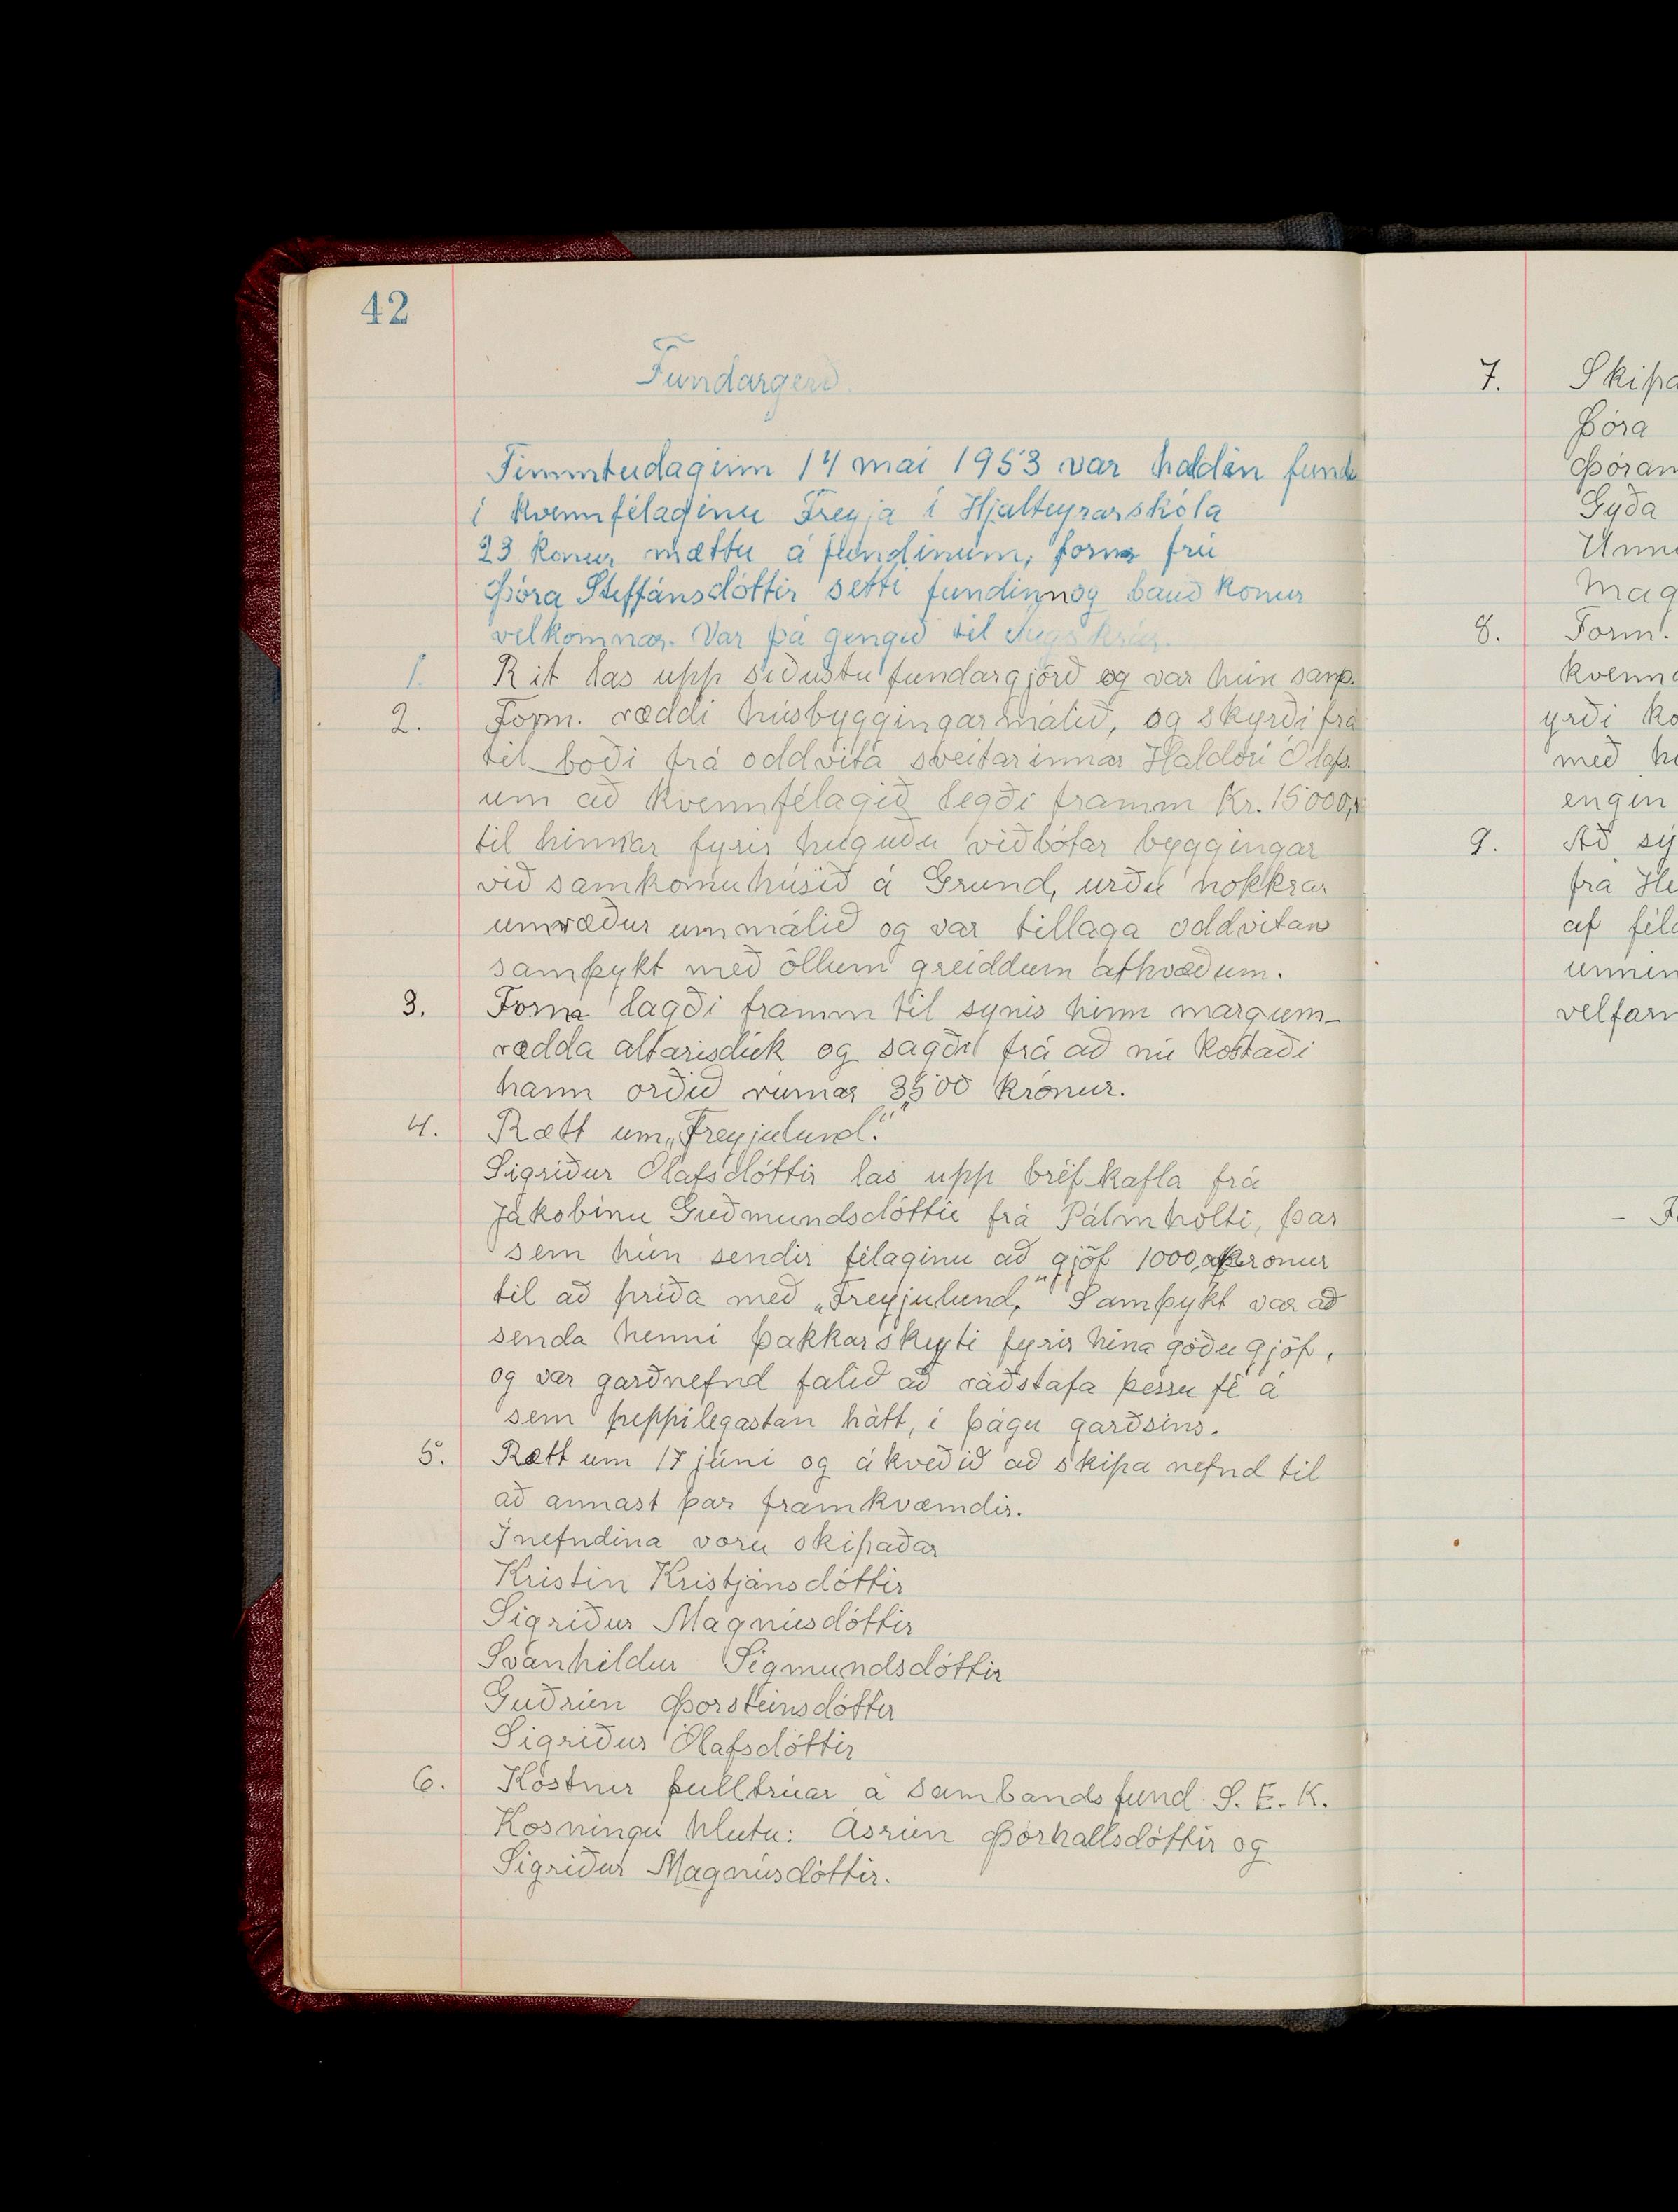 42
Fundargerð.
Fimmtudaginn 14 mai 1953 var haldin fund
i kvennfélaginu Freyja í Hjalteyrarskóla
23 konur mættu á fundinum, form frú
Þóra Steffánsdóttir setti fundinn og bauð konur
velkomnar. Var þá gengið til
1. Rit las upp síðustu fundargjörð og var hún samþ.
2. Form. ræddi húsbyggingarmálið, og skyrði frá
til boði frá oddvita sveitarinnar Haldóri Ólafs.
um að kvennfélagið legði framm Kr. 15000,
til hinnar fyrir huguðu viðbótar byggingar
við samkomuhúsið á Grund, urðu nokkrar
umræður um málið og var tillaga oddvitans
samþykt með öllum greiddum atkvæðum.
3. Form lagði framm til synis hinn margum-
rædda altarisdúk og sagði frá að nú kostaði
hann orðið rúmar 3500 krónur.
4. Rætt um „Freyjulund."
Sigríður Ólafsdóttir las upp bréfkafla frá
Jakobínu Guðmundsdóttir frá Pálmholti, þar
sem hún sendir félaginu að gjöf 1000, krónur
til að príða með „Freyjulund," Samþykt var að
senda henni þakkarskeyti fyrir hina góðu gjöf,
og var garðnefnd falið að ráðstafa þessu fé á
sem heppilegastan hátt, í þágu garðsins.
5. Rætt um 17 júní og ákveðið að skipa nefnd til
að annast þar framkvæmdir.
Í nefndina voru skipaðar
Kristín Kristjánsdóttir
Sigríður Magnúsdóttir
Svanhildur Sigmundsdóttir
Guðrún Þorsteinsdóttir
Sigríður Ólafsdóttir
6. Kostnir fulltrúar á sambandsfund S. E. K.
Kosningu hlutu: Ásrún Þórhallsdóttir og
Sigríður Magnúsdóttir.
7. Skipa
Þóra
Þóran
Gyða
Unn
Mag
8. Form.
kvenn
yrði ko
með h
engin
9. Að sý
frá He
af féla
unnin
velfarn